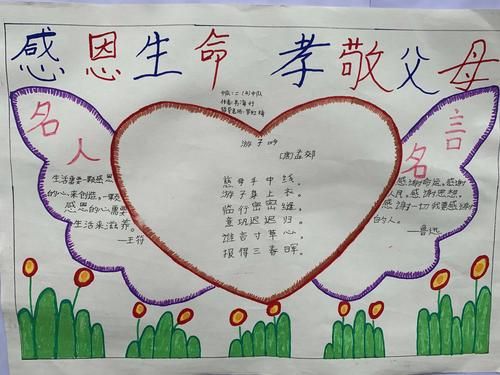 感恩生命 孝敬父母
游子吟
[唐]孟郊
慈母手中线，
游子身上衣。
临行密密缝，
意恐迟迟归。
谁言寸草心，
报得三春晖。
名人
生活需要一颗感恩
的心来创造，一颗
感恩的心需要
生活来滋养。
—王符
名言
感谢命运，感谢
人民，感谢思想，
感谢一切我要感谢
的人。
—鲁迅